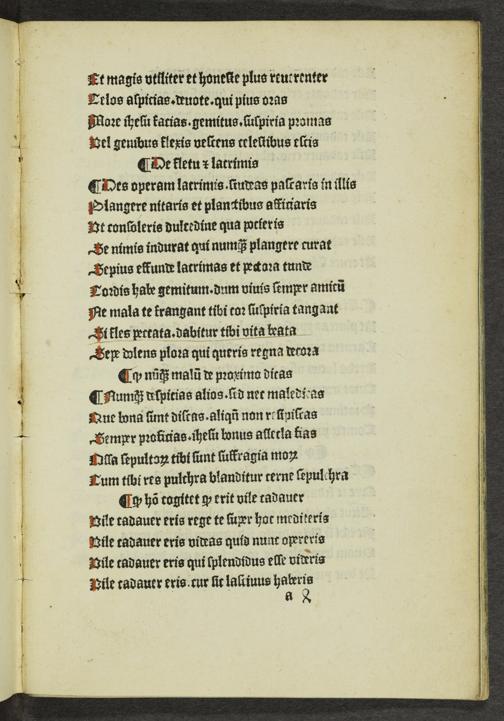 Et magis vtiliter et honeste plus reuerenter
Celos aspicias.deuote.qui pius oras
More ihesu facias.gemitus.suspiria promas
Vel genibus flexis vescens celestibus escis
¶De fletu ⁊ lacrimis
¶Des operam lacrimis.studeas pascaris in illis
Plangere nitaris et plangtibus afficiaris
Vt consoleris dulcedine qua pocieris
Se nimis indurat qui numꝙ̃ plangere curat
Sepius effunde lacrimas et pectora tunde
Cordis habe gemitum.dum viuis semper amicũ
Ne mala te frangant tibi cor suspiria tangant
Si fles peccata.dabitur tibi vita beata
Sepe dolens plora qui queris regna decora
¶ꝙ nũꝙ̃ malũ de proximo dicas
¶Numꝙ̃ despicias alios.sed nec maledicas
Que bona sunt discas.aliqñ non resipiscas
Semper proficias.ihesu bonus assecla fias
Ossa sepultoꝝ tibi sunt suffragia moꝝ
Cum tibi res pulchra blanditur cerne sepulchra
¶ꝙ hõ cogitet ꝙ erit vile cadauer
Vile cadauer eris rege te super hoc mediteris
Vile cadauer eris videas quid nunc opereris
Vile cadauer eris qui splendidus esse videris
Vile cadauer eris.cur sic lasciuus haberis
a